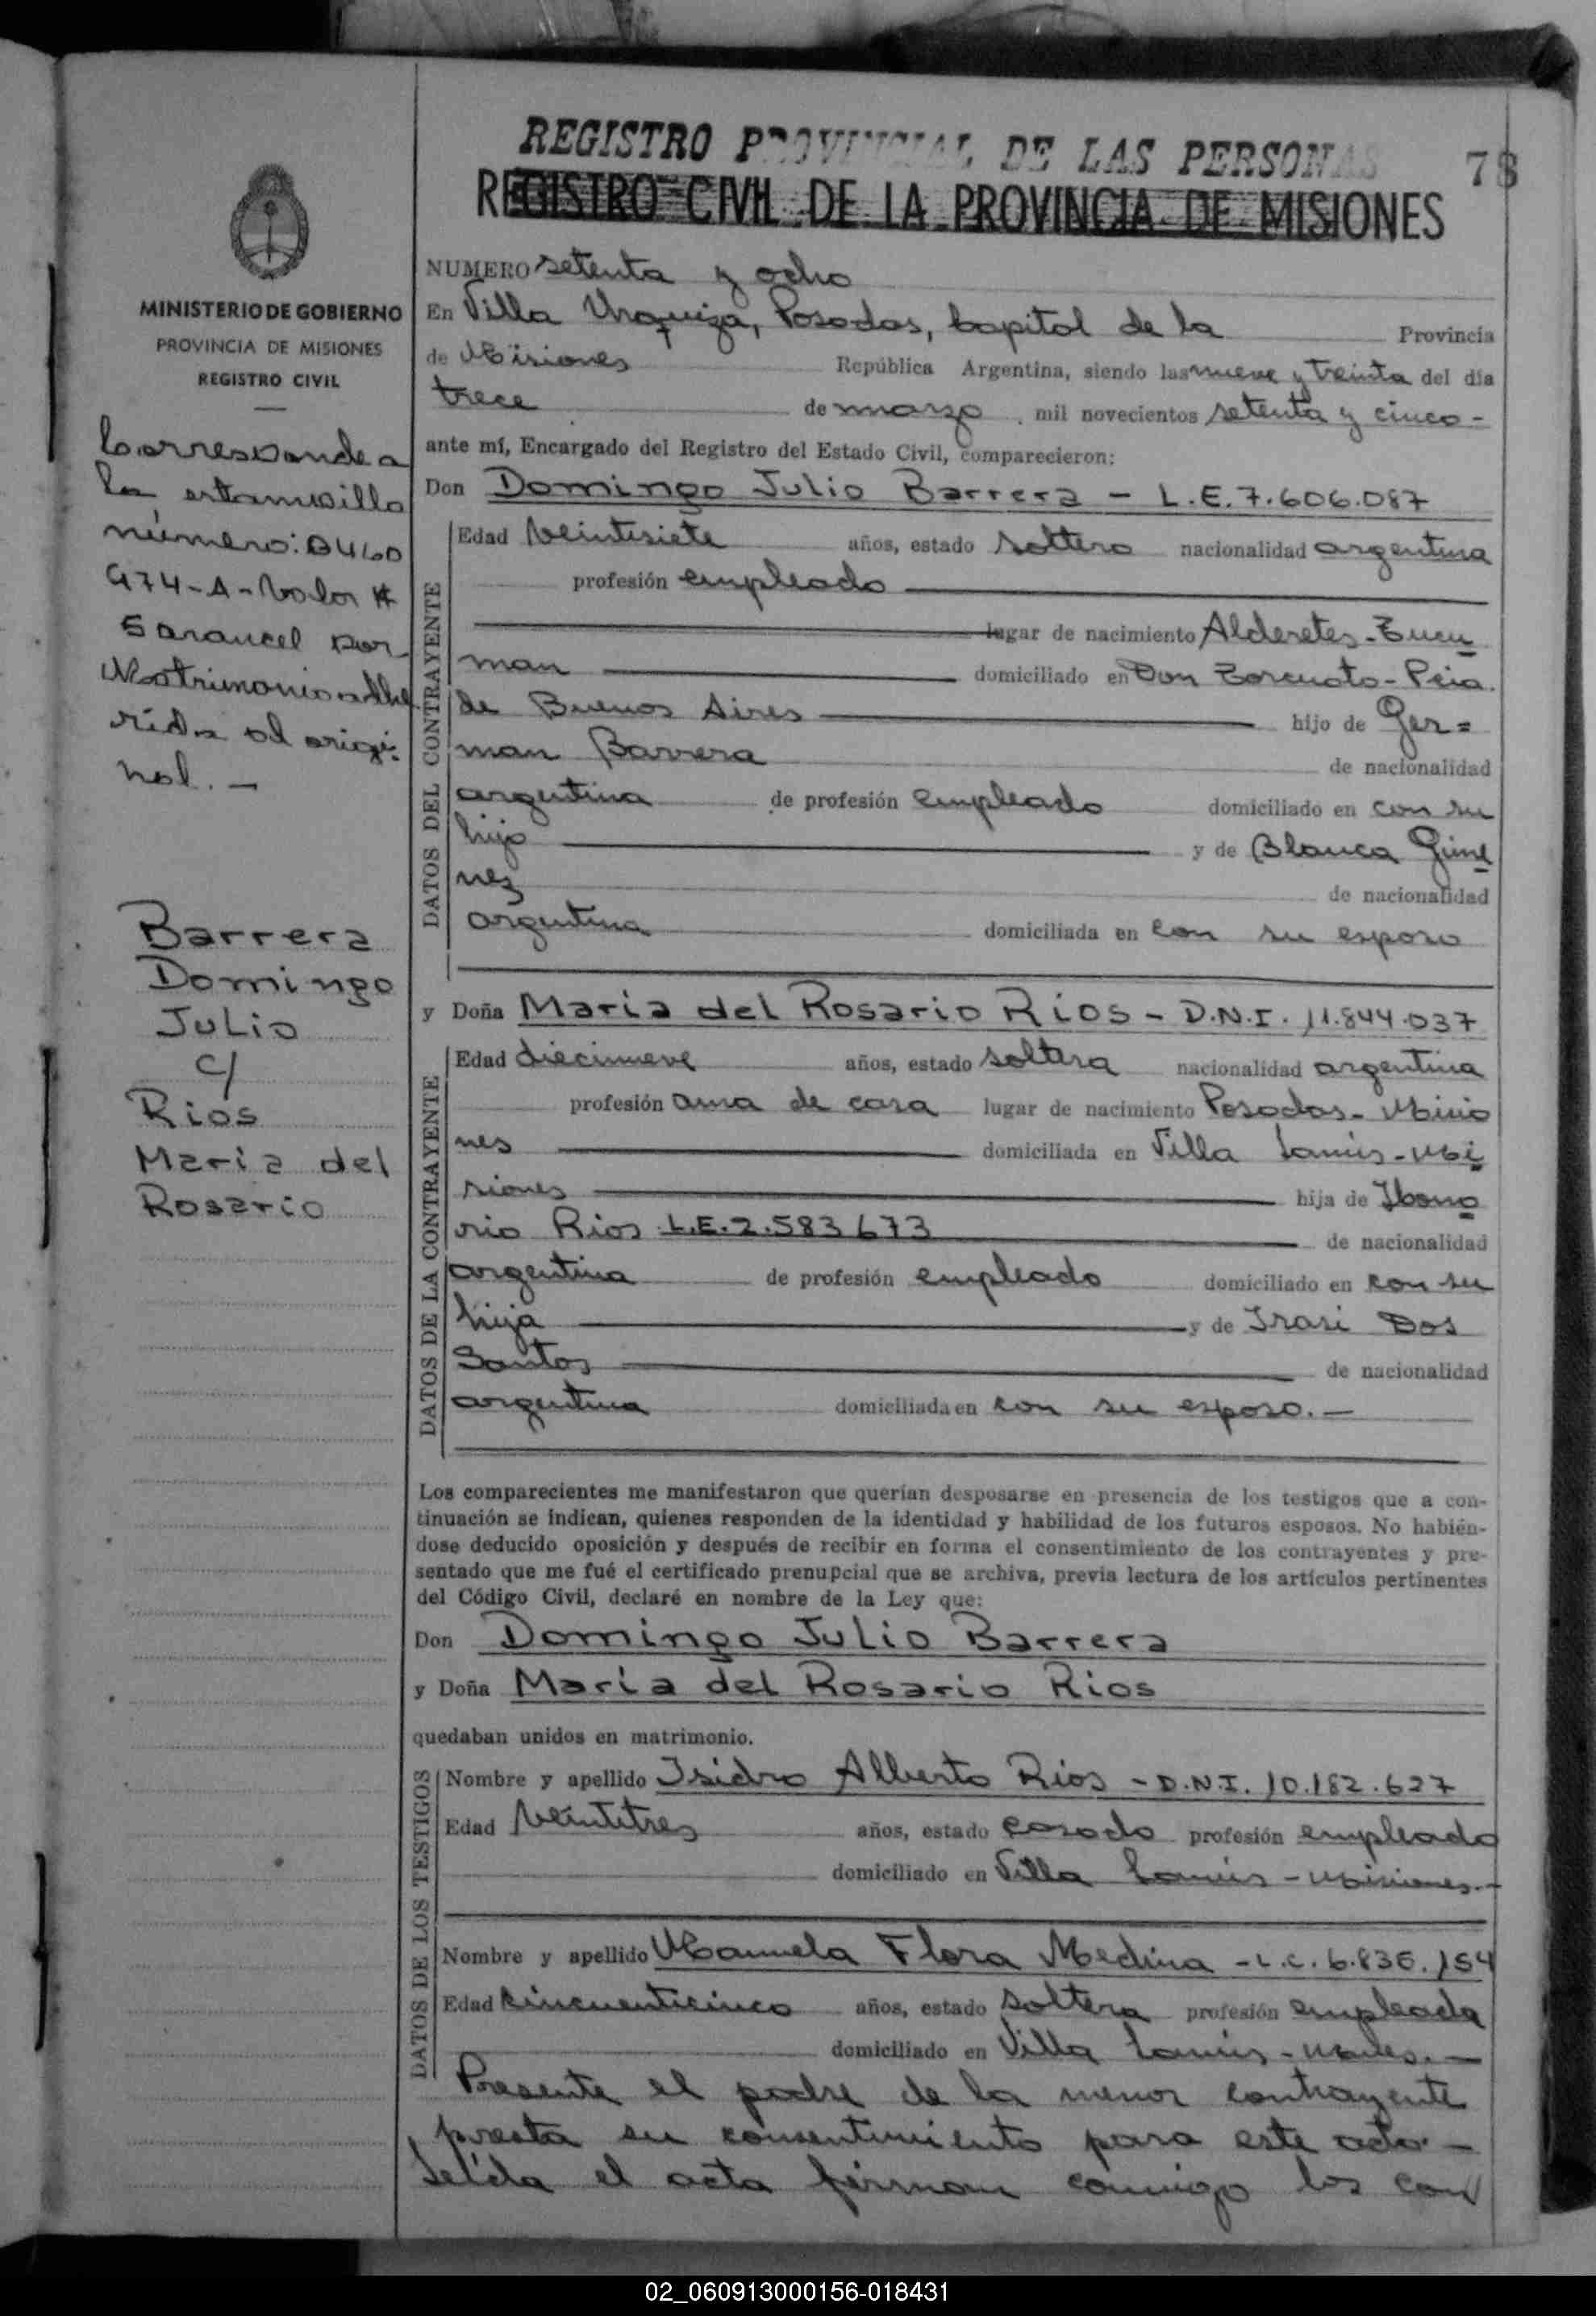 REGISTRO PROVINCIAL DE LAS PERSONAS
78
REGISTRO CIVIL DE LA PROVINCIA DE MISIONES
MINISTERIO DE GOBIERNO
PROVINCIA DE MISIONES
REGISTRO CIVIL
Corresponde a
la estampilla
número: B460
974-A-Valor $
5 arancel por
Matrimonio adhe
rida al origi-
nal.-
Barrera
Domingo
Julio
c/
Rios
Maria del
Rosario
NUMERO setenta y ocho
En Villa Urquiza, Posadas, Capital de la Provincia
de Misiones República Argentina, siendo las nueve y treinta del día
trece de marzo mil novecientos setenta y cinco-
ante mí, Encargado del Registro del Estado Civil, comparecieron:
Don Domingo Julio Barrera - L.E.7.606.087
DATOS DEL CONTRAYENTE
Edad Veintisiete años, estado soltero nacionalidad argentina
profesión empleado
lugar de nacimiento Alderetes-Tucu
man domiciliado en Don Torcuato-Pcia.
de Buenos Aires hijo de Ger=
man Barrera de nacionalidad
argentina de profesión empleado domiciliado en con su
hijo y de Blanca Gime
nez de nacionalidad
argentina domiciliada en con su esposo
y Doña Maria del Rosario Rios - D.N.I. 11.844.037
DATOS DE LA CONTRAYENTE
Edad diecinueve años, estado soltera nacionalidad argentina
profesión ama de casa lugar de nacimiento Posadas-Misio
nes domiciliada en Villa Lanús-Mi
siones hija de Hono
rio Rios L.E.2.583.673 de nacionalidad
argentina de profesión empleado domiciliado en con su
hija y de Irasi Dos
Santos de nacionalidad
argentina domiciliada en con su esposo.-
Los comparecientes me manifestaron que querían desposarse en presencia de los testigos que a con-
tinuación se indican, quienes responden de la identidad y habilidad de los futuros esposos. No habién-
dose deducido oposición y después de recibir en forma el consentimiento de los contrayentes y pre-
sentado que me fué el certificado prenupcial que se archiva, previa lectura de los artículos pertinentes
del Código Civil, declaré en nombre de la Ley que:
Don Domingo Julio Barrera
y Doña María del Rosario Rios
quedaban unidos en matrimonio.
DATOS DE LOS TESTIGOS
Nombre y apellido Isidro Alberto Rios - D.N.I. 10.182.627
Edad Veintitres años, estado casado profesión empleado
domiciliado en Villa Lanús - Misiones.-
Nombre y apellido Manuela Flora Medina - L.C. 6.836.154
Edad Cincuenticinco años, estado soltera profesión empleada
domiciliado en Villa Lanús-
Presente el padre de la menor contrayente
presta su consentimiento para este acto.-
Leída el acta firman conmigo los con
02_060913000156-018431